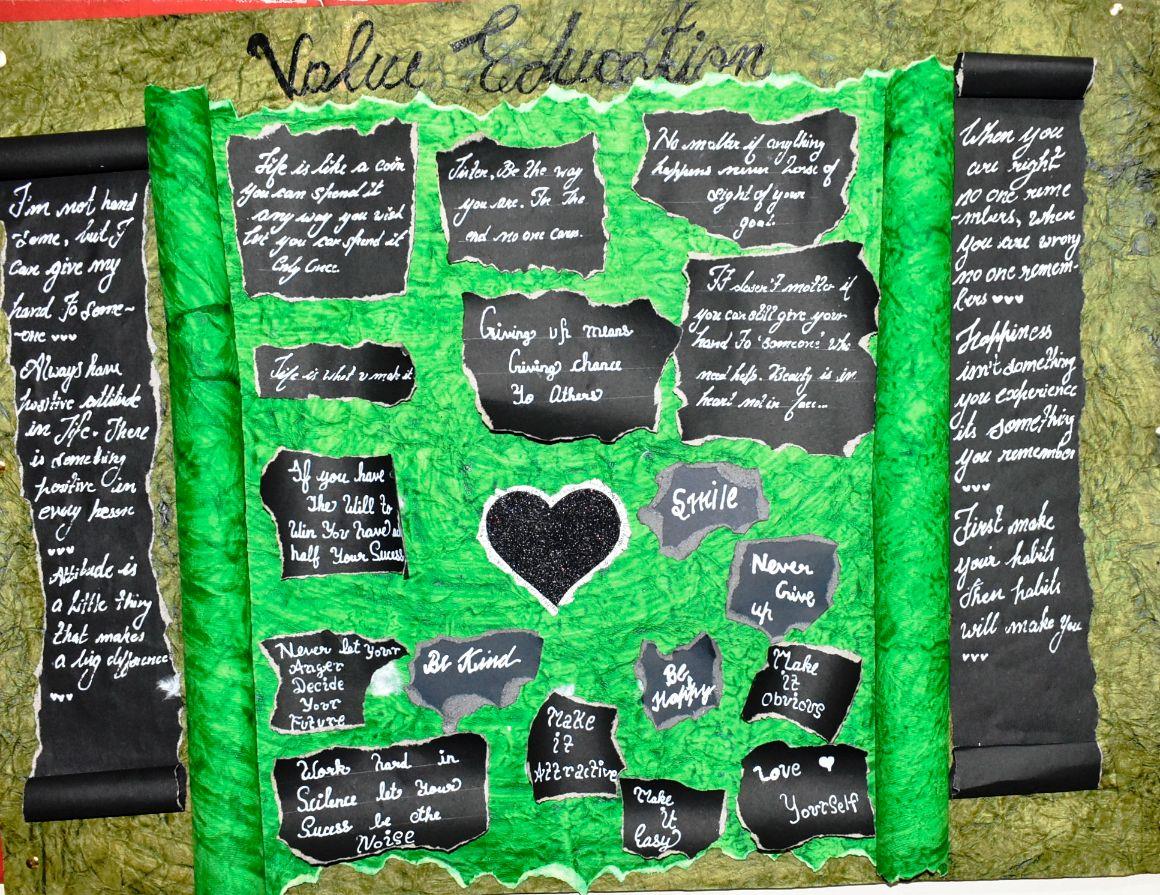 Value Education
I'm not hand
some, but I
can give my
hand To Some-
-one
Always have
positive attitude
in Life. There
is something
positive in
every person
Attitude is
a little thing
that makes
a big difference
Life is like a coin
you can spend it
any way you wish
but you can spend it
Only Once.
Sister, Be the way
you are. In The
end no one cares.
No matter if anything
happens never loose of
sight of your
goal.
Life is what u mak it
Giving up means
Giving chance
To Others
It doesn't matter if
you can still give your
hand To 'someone' Who
need help. Beauty is in
heart not in face...
If you have
The Will to
Win You have
half Your Sucess
Smile
Never
Give
up
Never let Your
Anger
Decide
Your
Future
Be Kind
Be
Happy
Make
it
Obvious
Make
it
Attractive
Work hard in
Scilence let Your
Sucess be the
Noise
Make
it
Easy
Love
Yourself
When you
are right
no one reme
-mbers, When
you are wrong
no one remem-
bers
Happiness
isn't something
you experience
its something
you remember
First make
your habits
then habits
will make you